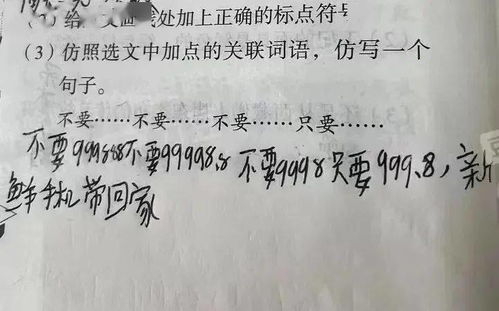 处加上正确的标点符号
(3)仿照选文中加点的关联词语,仿写一个
句子。
不要……不要……不要……只要……
不要999888不要99998.8 不要9998只要999.8,新
鲜手机带回家